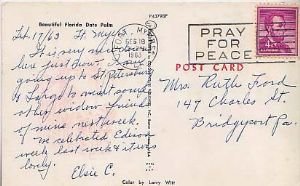 Beautiful Florida Date Palm
P43787
Feb 17/63 Ft Myers
This is very much
here just now. I am
going up to St Petersburg
& Largo to visit some
other widow friend
of mine next week.
we celebrated Edison
week last week & it was
lovely.
Elsie C.
FEB 18
1963
PRAY
FOR
PEACE
4¢
POST CARD
Mrs. Ruth Ford
147 Charles St.
Bridgeport Pa.
Color by Larry Witt